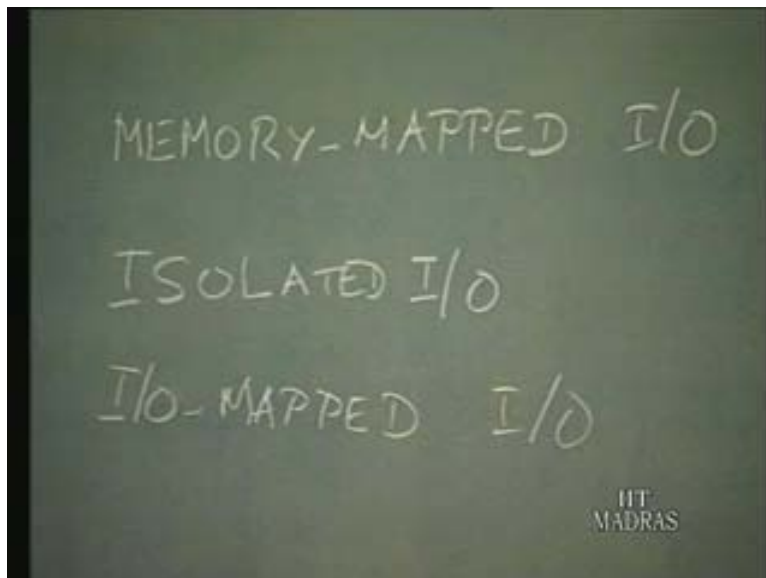 MEMORY-MAPPED I/O
ISOLATED I/O
I/O-MAPPED I/O
IIT
MADRAS